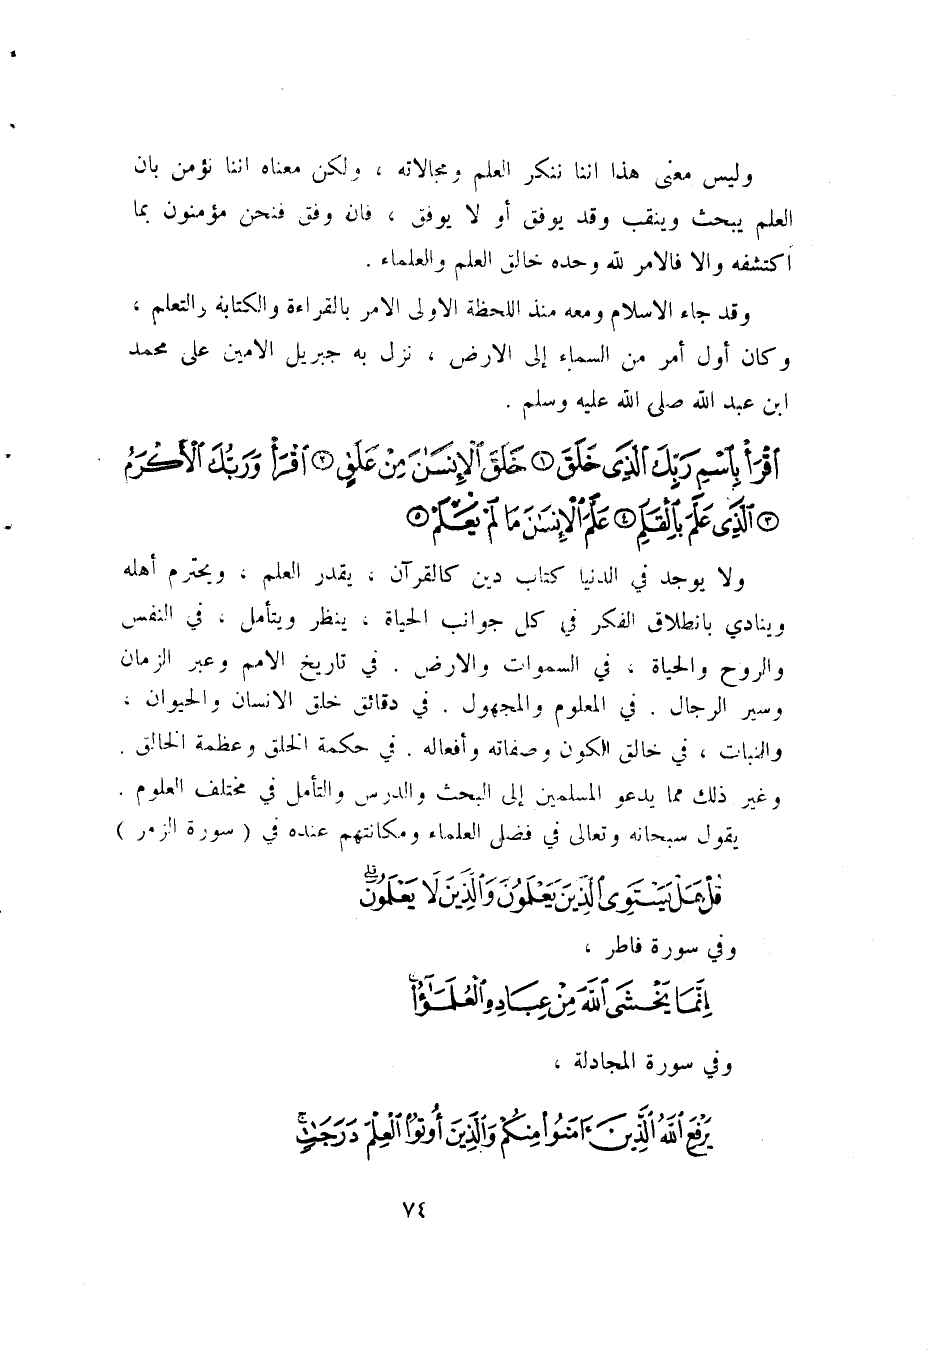 وليس معنى هذا اننا ننكر العلم ومجالاته ، ولكن معناه اننا نؤمن بان
العلم يبحث وينقب وقد يوفق أو لا يوفق ، فان وفق فنحن مؤمنون بما
أكتشفه والا فالامر لله وحده خالق العلم والعلماء .
وقد جاء الاسلام ومعه منذ اللحظة الاولى الامر بالقراءة والكتابة والتعلم ،
وكان أول أمر من السماء إلى الارض ، نزل به جبريل الامين على محمد
ابن عبد الله صلى الله عليه وسلم .
ٱقْرَأْ بِٱسْمِ رَبِّكَ ٱلَّذِى خَلَقَ ١ خَلَقَ ٱلْإِنسَٰنَ مِنْ عَلَقٍ ٢ ٱقْرَأْ وَرَبُّكَ ٱلْأَكْرَمُ
٣ ٱلَّذِى عَلَّمَ بِٱلْقَلَمِ ٤ عَلَّمَ ٱلْإِنسَٰنَ مَا لَمْ يَعْلَمْ ٥
ولا يوجد في الدنيا كتاب دين كالقرآن ، يقدر العلم ، ويحترم أهله
وينادي بانطلاق الفكر في كل جوانب الحياة ، ينظر ويتأمل ، في النفس
والروح والحياة ، في السموات والارض . في تاريخ الامم وعبر الزمان
وسير الرجال . في المعلوم والمجهول . في دقائق خلق الانسان والحيوان ،
والنبات ، في خالق الكون وصفاته وأفعاله . في حكمة الخلق وعظمة الخالق .
وغير ذلك مما يدعو المسلمين إلى البحث والدرس والتأمل في مختلف العلوم .
يقول سبحانه وتعالى في فضل العلماء ومكانتهم عنده في ( سورة الزمر )
قُلْ هَلْ يَسْتَوِى ٱلَّذِينَ يَعْلَمُونَ وَٱلَّذِينَ لَا يَعْلَمُونَۗ
وفي سورة فاطر ،
إِنَّمَا يَخْشَى ٱللَّهَ مِنْ عِبَادِهِ ٱلْعُلَمَٰٓؤُاۗ
وفي سورة المجادلة ،
يَرْفَعِ ٱللَّهُ ٱلَّذِينَ ءَامَنُوا۟ مِنكُمْ وَٱلَّذِينَ أُوتُوا۟ ٱلْعِلْمَ دَرَجَٰتٍۚ
٧٤